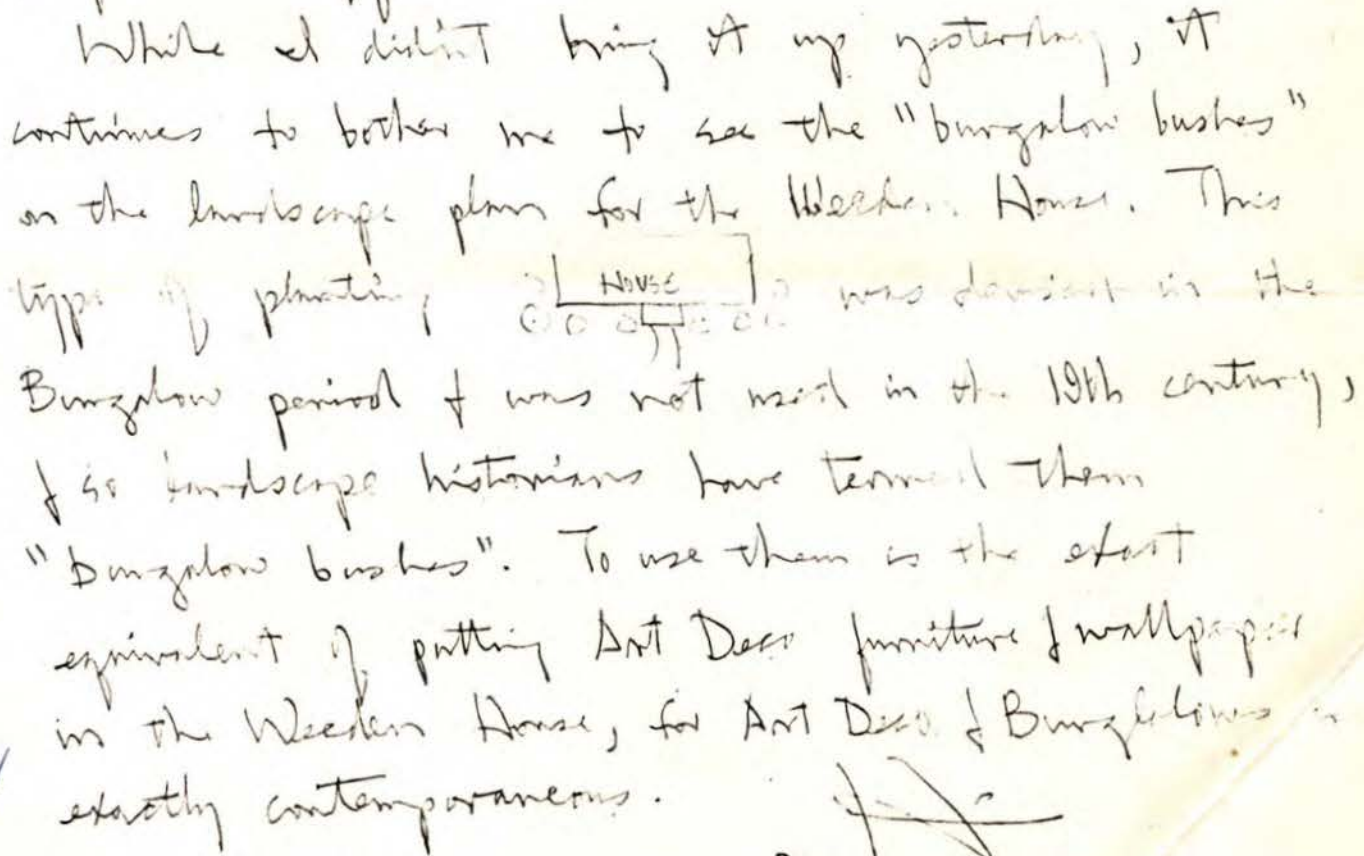 While I didn't bring it up yesterday, it
continues to bother me to see the "bungalow bushes"
on the landscape plan for the Weeden House. This
type of planting HOUSE was devised in the
Bungalow period & was not used in the 19th century,
& so landscape historians have termed them
"bungalow bushes". To use them is the exact
equivalent of putting Art Deco furniture & wallpaper
in the Weeden House, for Art Deco & Bunglelows
exactly contemporaneous.